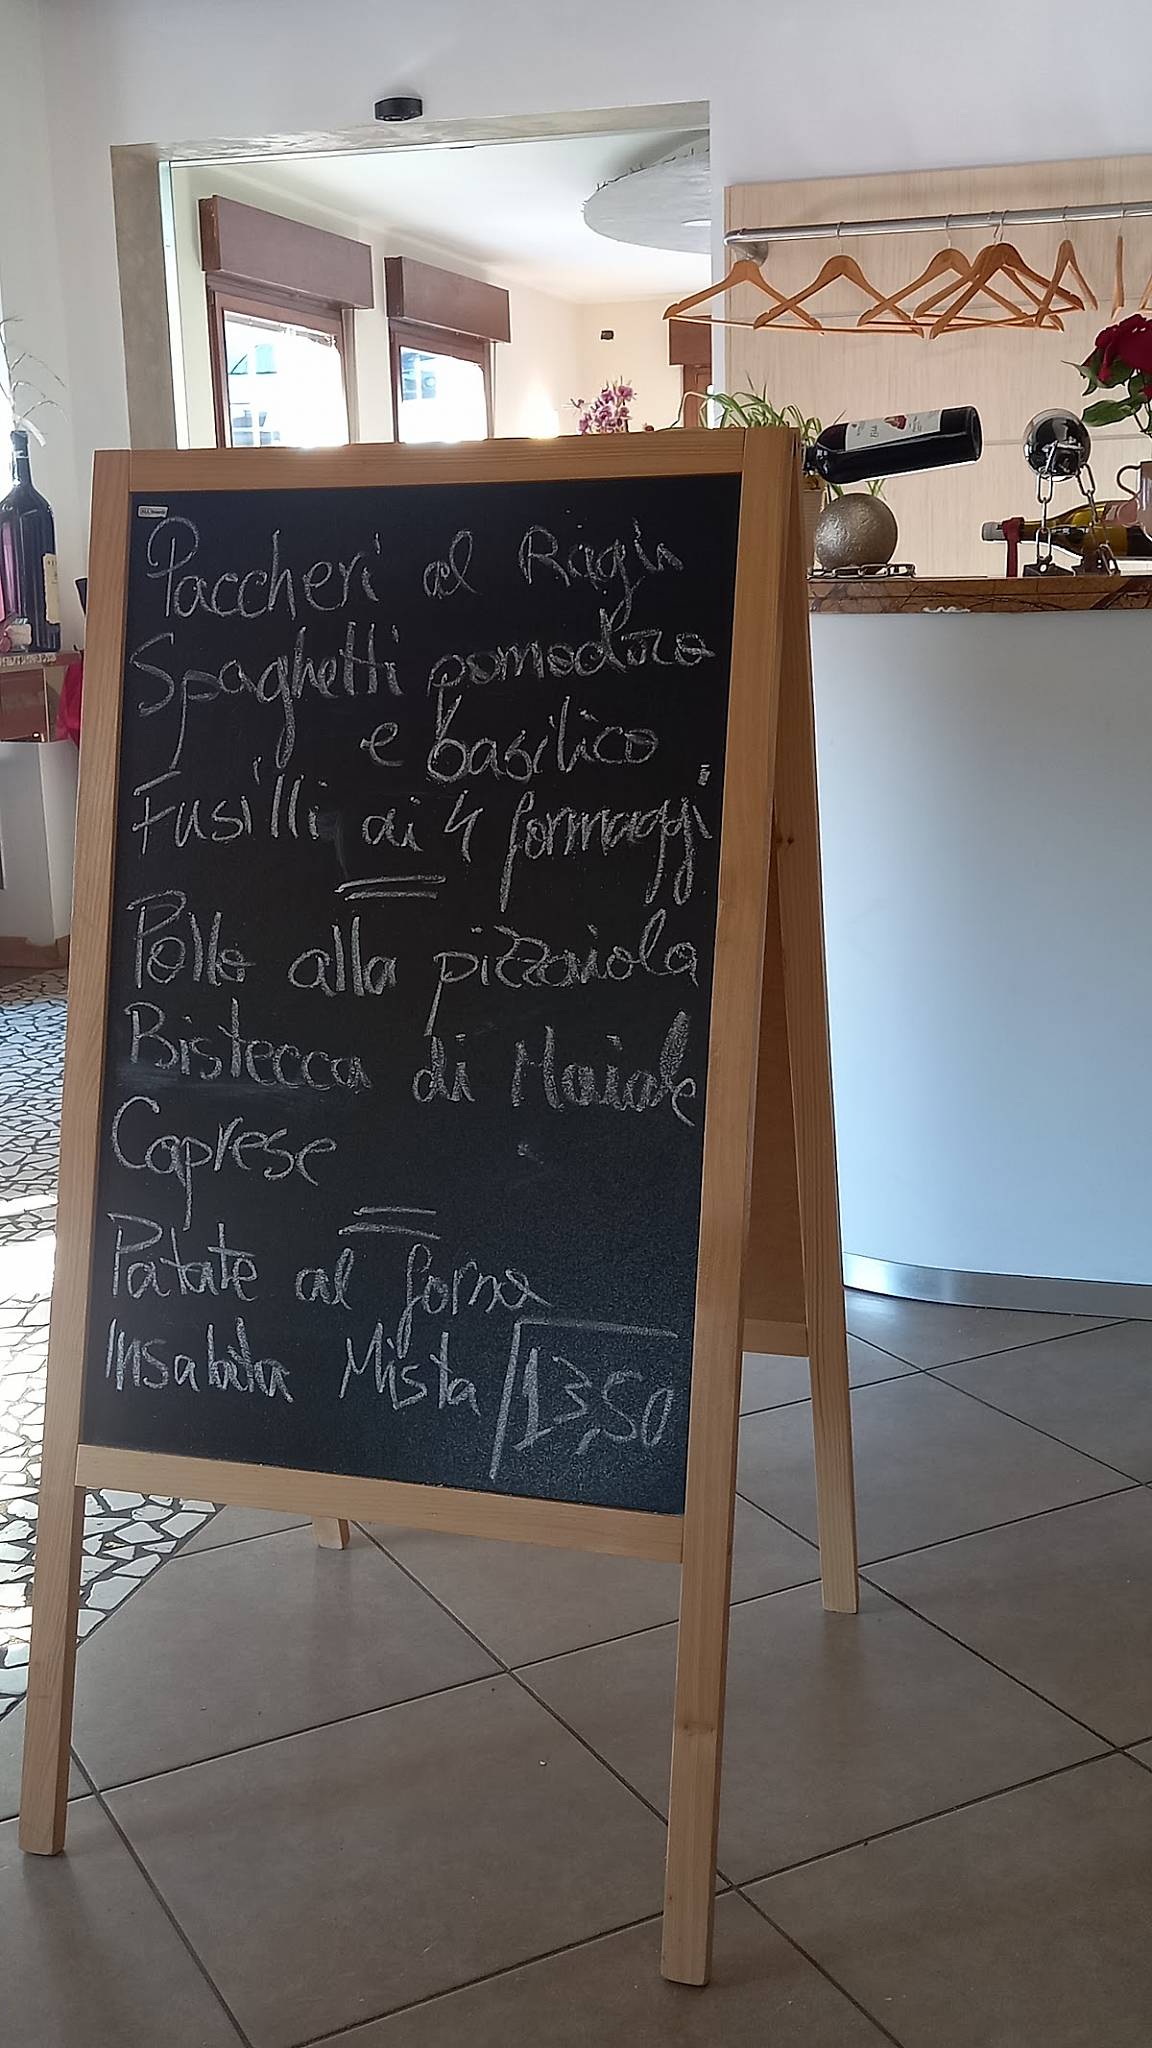 Paccheri al Ragù
Spaghetti pomodoro
e basilico
Fusilli ai 4 formaggi
Pollo alla pizzaiola
Bistecca di Maiale
Caprese
Patate al forno
Insalata Mista 13,50